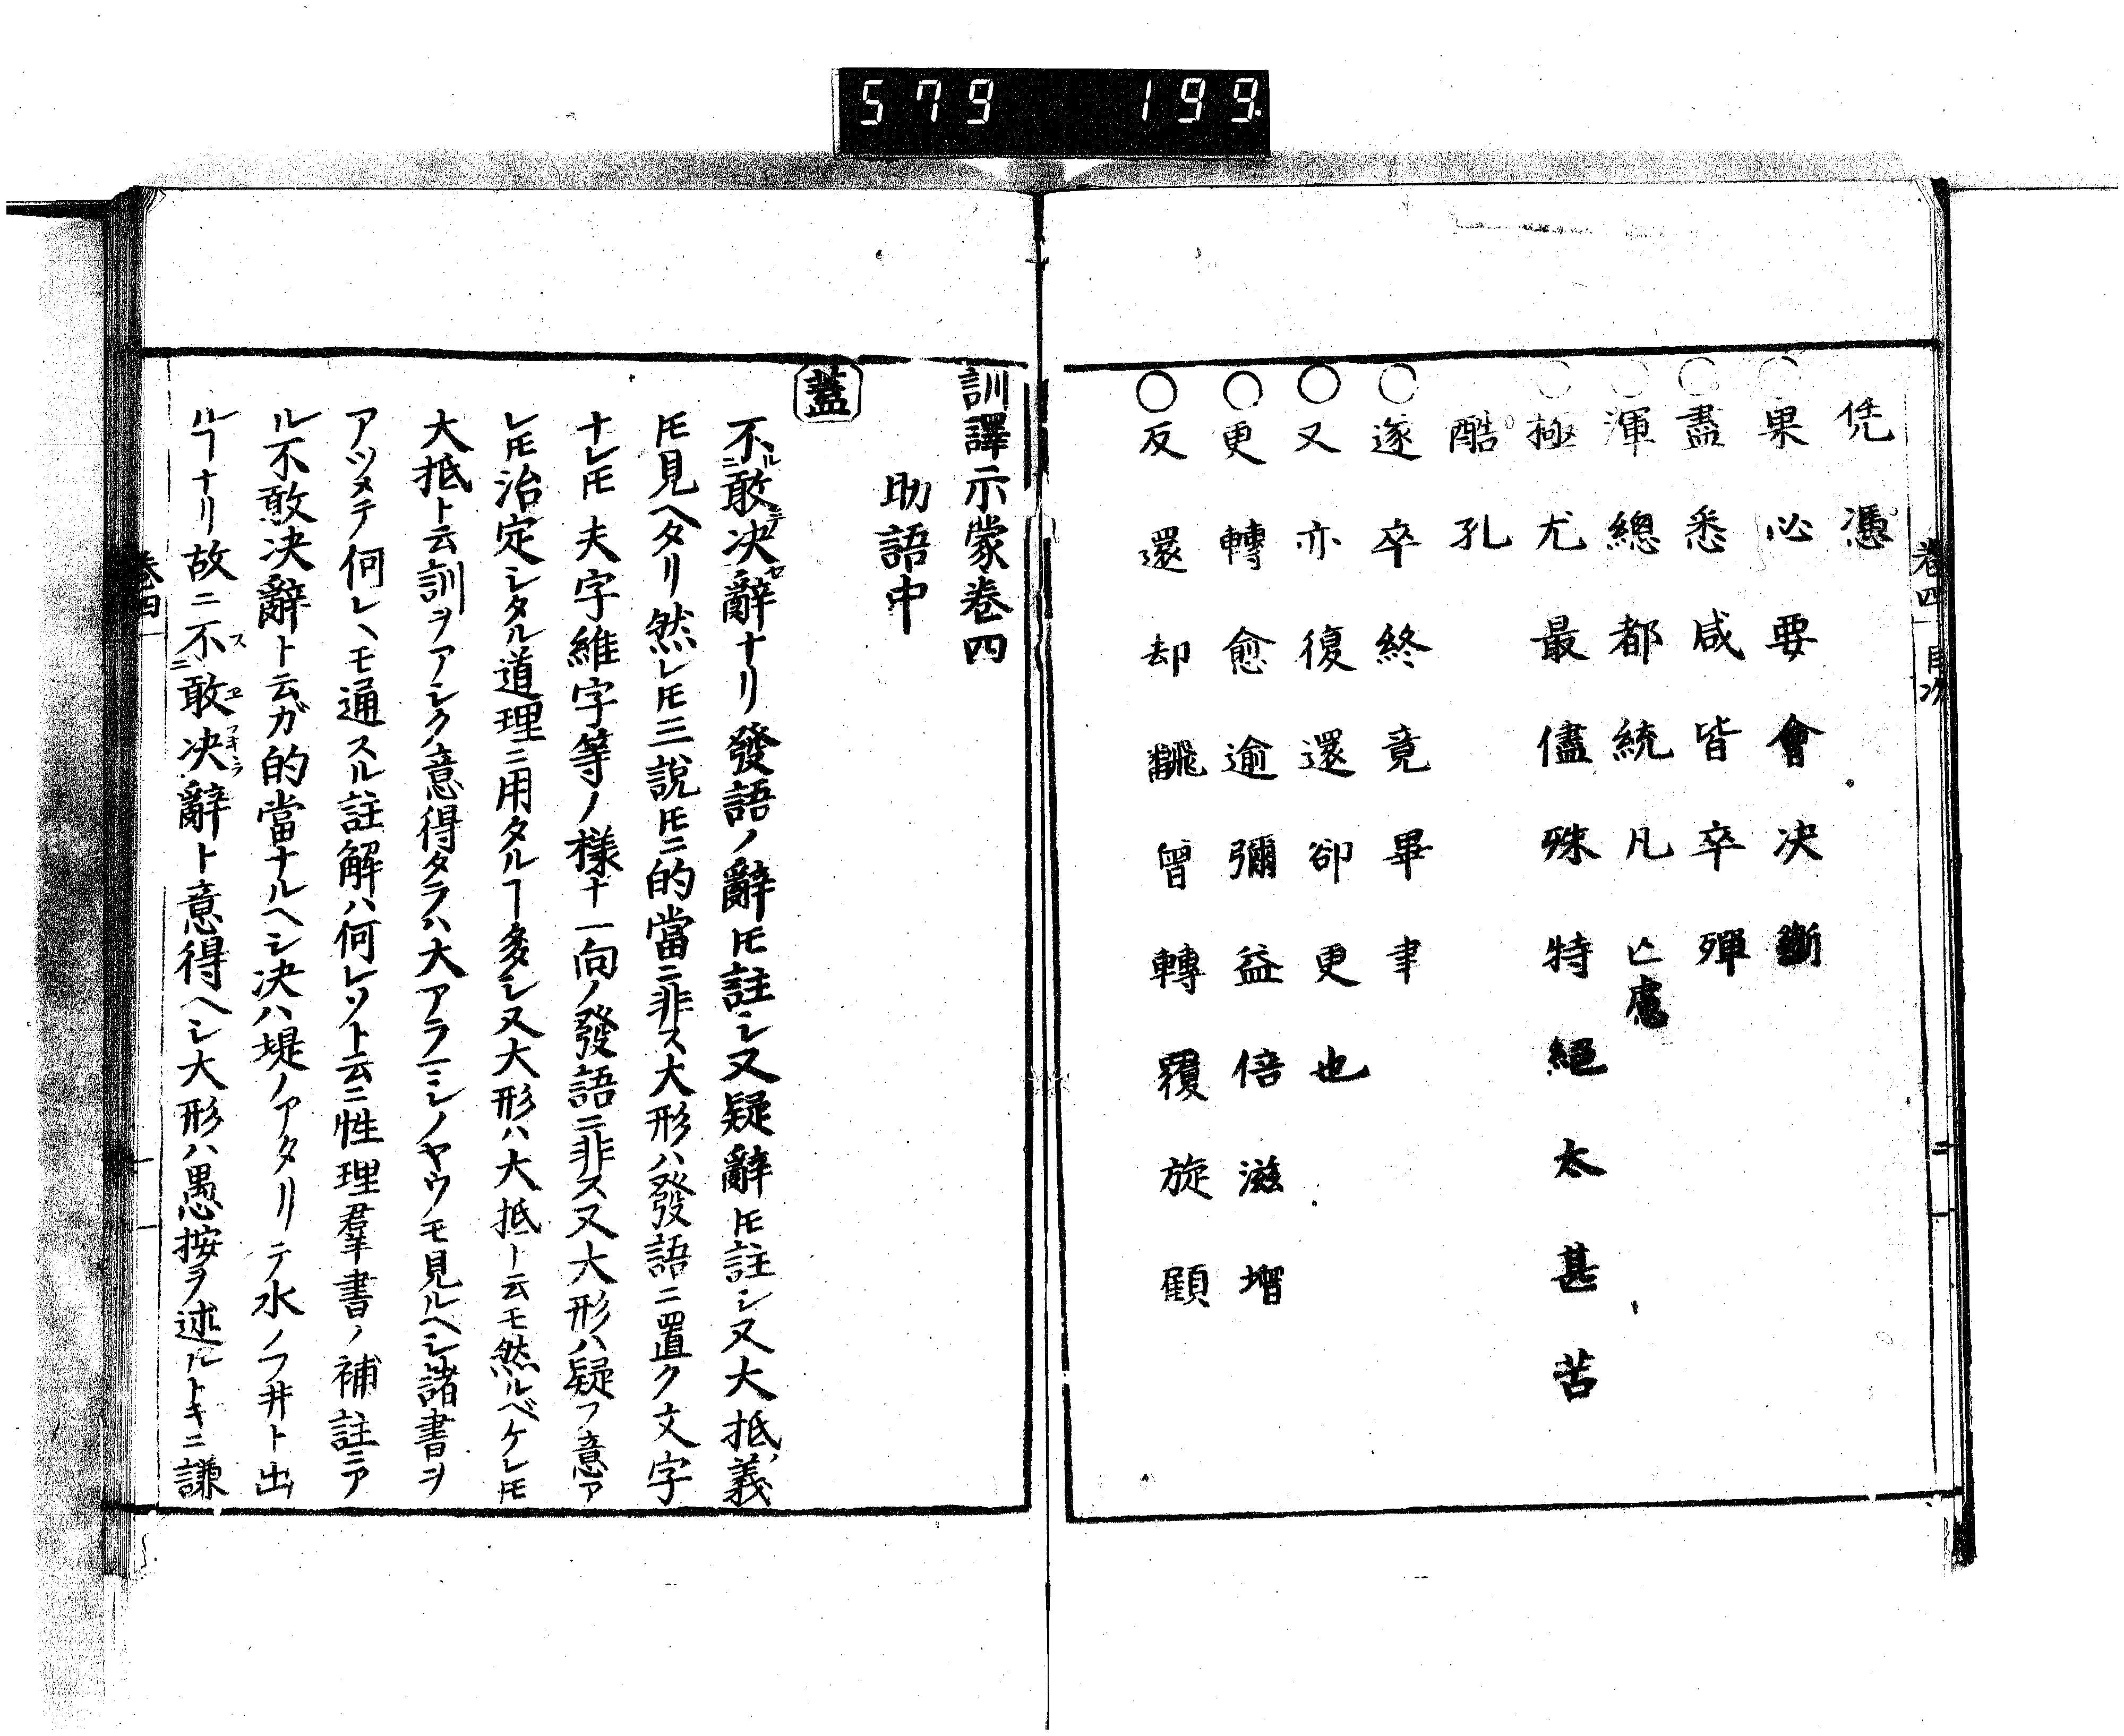 579 199
卷四 目次
凭憑
○果必要會决斷
○盡悉咸皆卒殫
○渾總都統凡亡慮
○極尤最儘殊特絕太甚苦
酷孔
○遂卒終竟畢聿
○又亦復還卻更也
○更轉愈逾彌益倍滋增
○反還却翻曾轉覆旋顧
訓譯示蒙卷四
助語中
蓋
不敢决辭ナリ發語ノ辭𪜈註シ又疑辭𪜈註シ又大抵ノ義
𪜈見ヘタリ然レ𪜈三說𪜈ニ的當ニ非ス大形ハ發語ニ置ク文字
ナレ𪜈夫字維字等ノ樣ナ一向ノ發語ニ非ス又大形ハ疑フ意ア
レ𪜈治定シタル道理ニ用タルヿ多シ又大形ハ大抵ト云モ然ルベケレ𪜈
大抵ト云訓ヲアシク意得タラハ大アラマシノヤウモ見ルヘシ諸書ヲ
アツメテ何レヘモ通スル註解ハ何レソト云ニ性理羣書ノ補註ニア
ル不敢决辭ト云ガ的當ナルヘシ决ハ堤ノアタリテ水ノフ井ト出
ルヿナリ故ニ不敢决辭ト意得ヘシ大形ハ愚按ヲ述ルトキニ謙
卷四